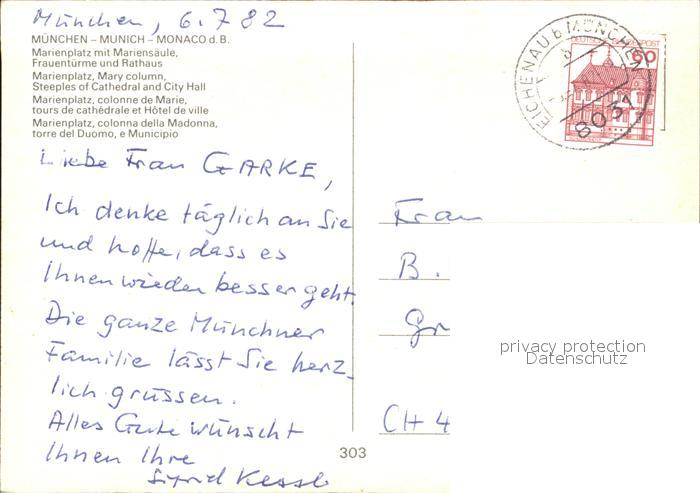 München, 6.7 82
MÜNCHEN – MUNICH – MONACO d. B.
Marienplatz mit Mariensäule,
Frauentürme und Rathaus
Marienplatz, Mary column,
Steeples of Cathedral and City Hall
Marienplatz, colonne de Marie,
tours de cathédrale et Hôtel de ville
Marienplatz, colonna della Madonna,
torre del Duomo, e Municipio
Liebe Frau GARKE,
Ich denke täglich an Sie
und hoffe, dass es
Ihnen wieder besser geht.
Die ganze Münchner
Familie lässt Sie herz-
lich grüssen.
Alles Gute wünscht
Ihnen Ihre
Sigrid Kessl
303
EICHENAU b MÜNCHEN
8031
DEUTSCHE BUNDESPOST
60
Frau
B.
Gr
CH 4
privacy protection
Datenschutz